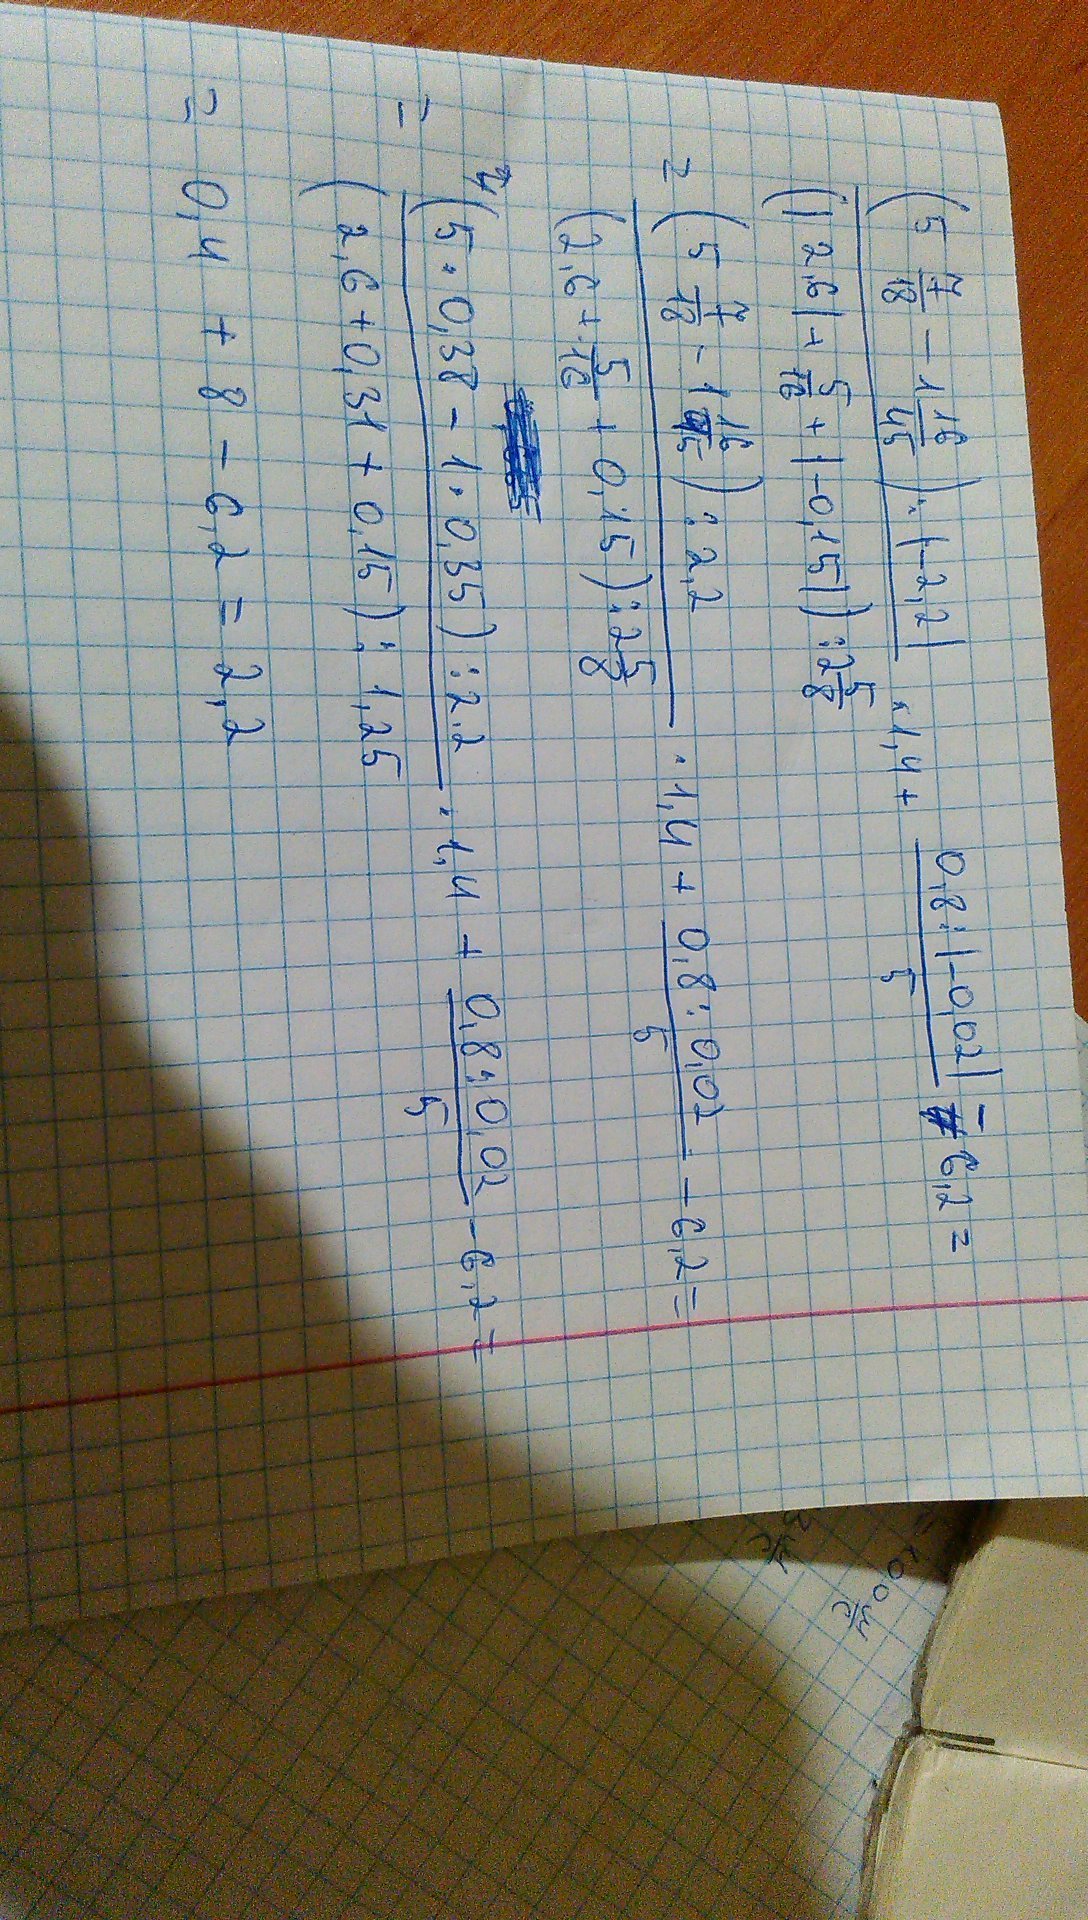 (5 7/18 - 1 16/45) : |-2,2|
(|2,6| + 5/16 + |-0,15|) : 2 5/8
· 1,4 + 0,8 : |-0,02| / 5 - 6,2 =
= (5 7/18 - 1 16/45) : 2,2
(2,6 + 5/16 + 0,15) : 2 5/8
· 1,4 + 0,8 : 0,02 / 5 - 6,2 =
= (5 · 0,38 - 1 · 0,35) : 2,2
(2,6 + 0,31 + 0,15) : 1,25
· 1,4 + 0,8 : 0,02 / 5 - 6,2 =
= 0,4 + 8 - 6,2 = 2,2